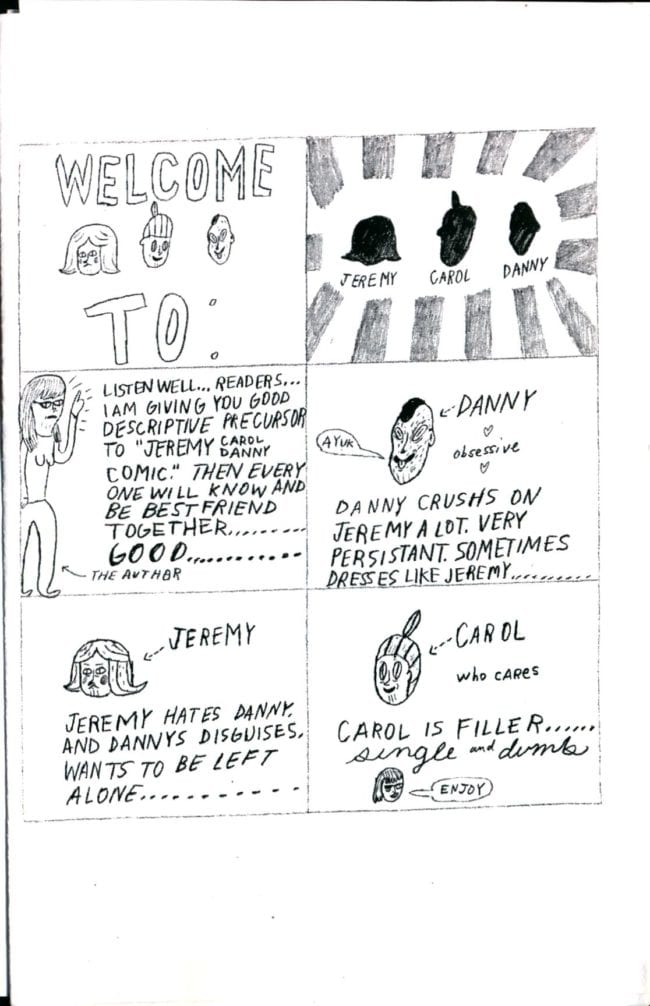 WELCOME
TO:
JEREMY
CAROL
DANNY
LISTEN WELL... READERS...
I AM GIVING YOU GOOD
DESCRIPTIVE PRECURSOR
TO "JEREMY CAROL DANNY
COMIC." THEN EVERY
ONE WILL KNOW AND
BE BEST FRIEND
TOGETHER.........
GOOD............
THE AUTHOR
DANNY
AYUK
obsessive
DANNY CRUSHS ON
JEREMY A LOT. VERY
PERSISTANT. SOMETIMES
DRESSES LIKE JEREMY..........
JEREMY
JEREMY HATES DANNY,
AND DANNYS DISGUISES.
WANTS TO BE LEFT
ALONE............
CAROL
who cAREs
CAROL IS FILLER......
single and dumb
ENJOY